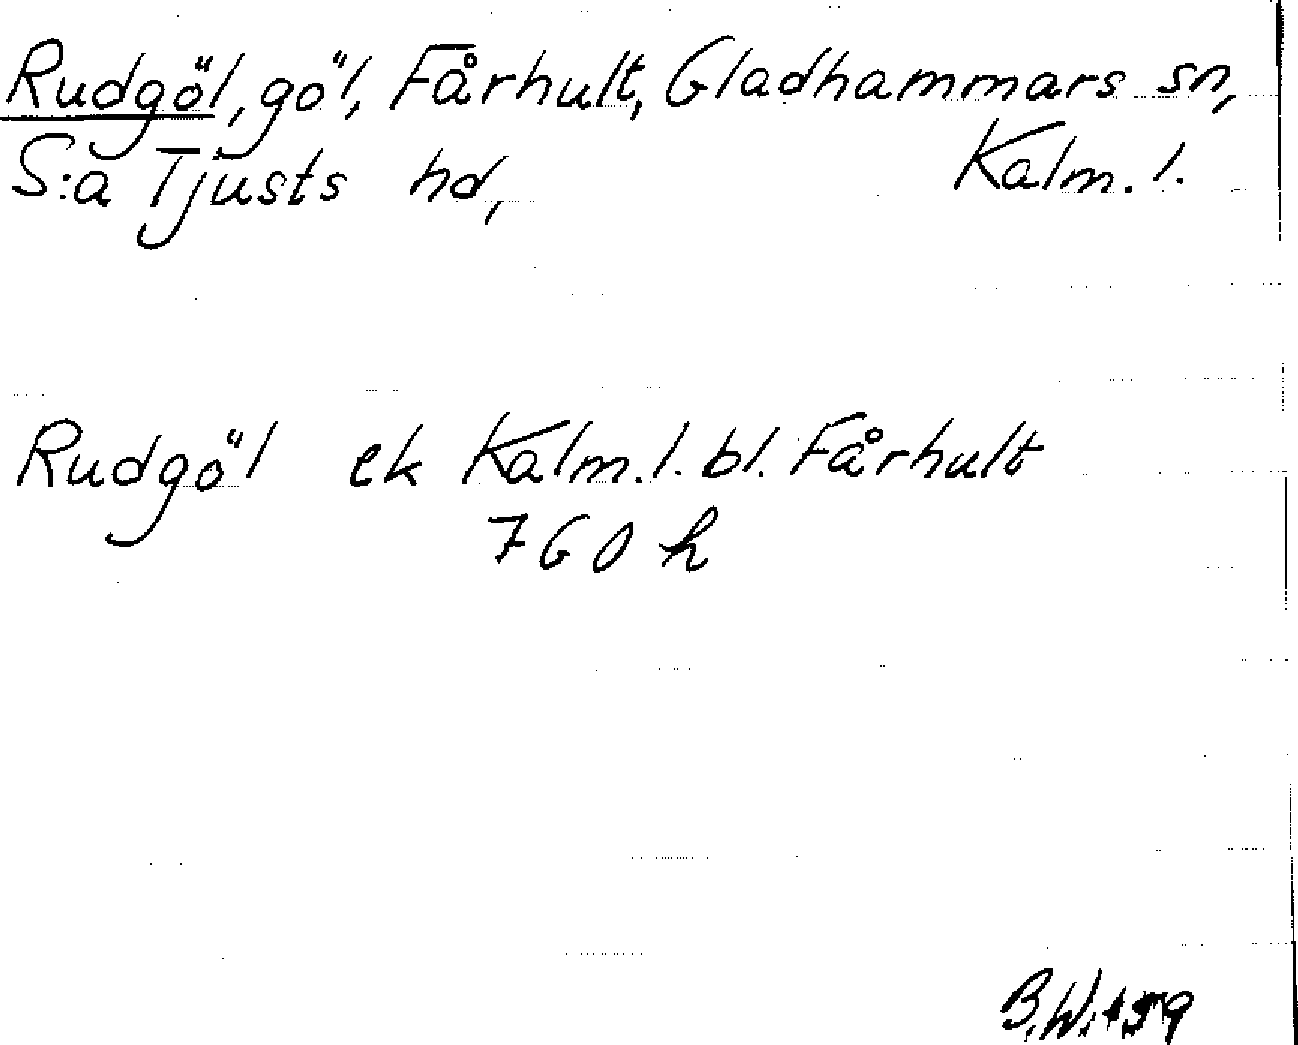 Rudgöl, göl, Fårhult, Gladhammars sn,
S:a Tjusts hd, Kalm. l.
Rudgöl ek Kalm. l. bl. Fårhult
760 h
B.W.